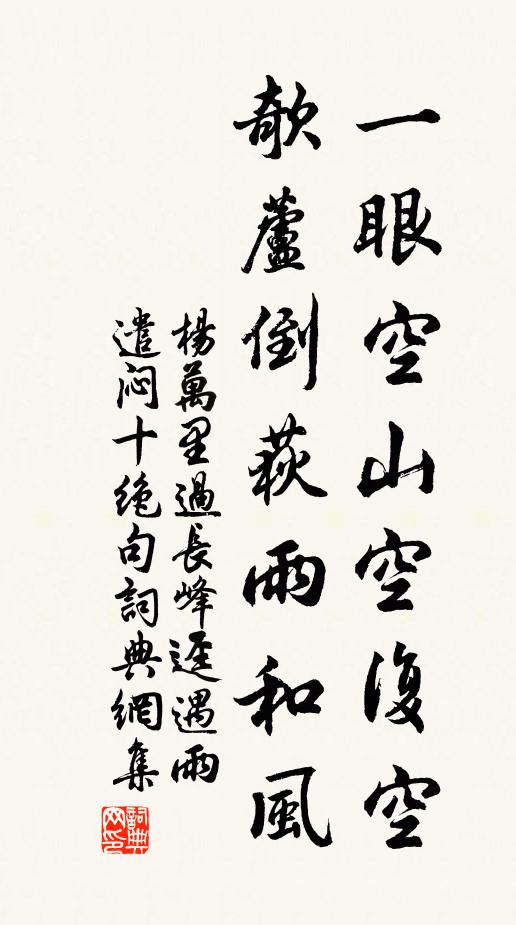 一眼空山空復空
欹蘆倒荻雨和風
楊萬里過長峰逕遇雨
遣悶十絕句詞典網集
詞典网印